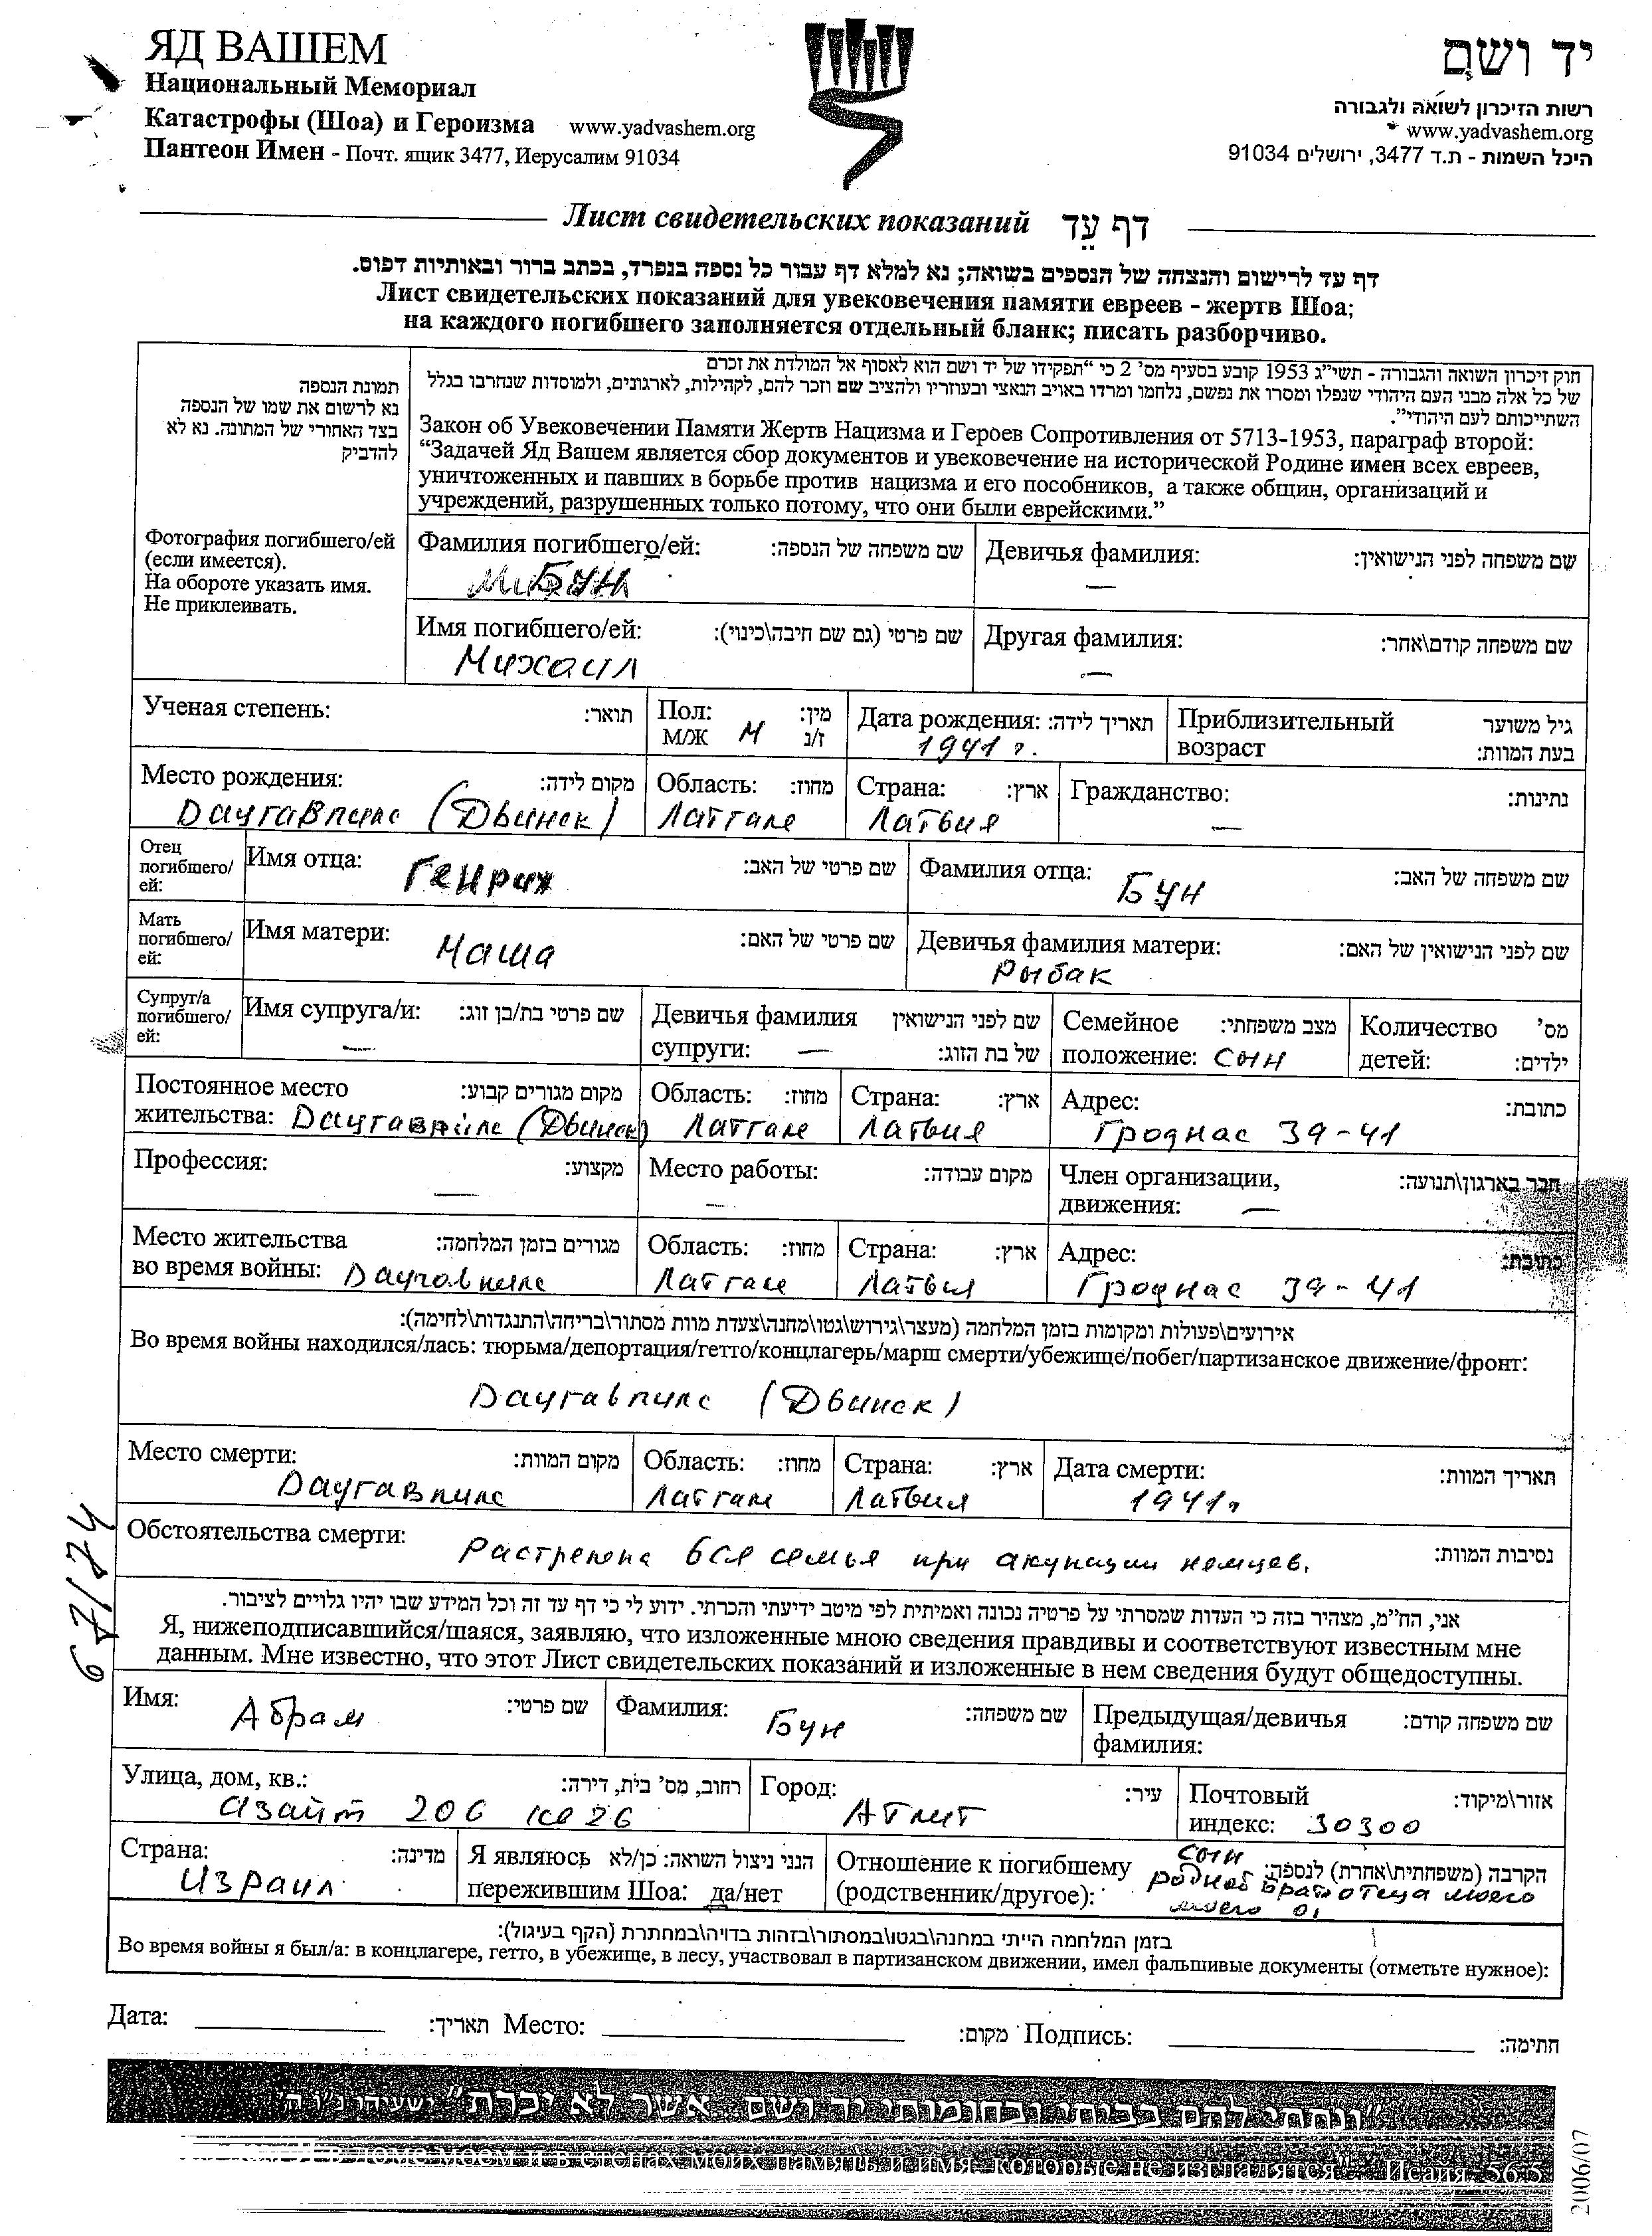 ЯД ВАШЕМ
Национальный Мемориал
Катастрофы (Шоа) и Героизма www.yadvashem.org
Пантеон Имен - Почт. ящик 3477, Иерусалим 91034
יד ושם
רשות הזיכרון לשואה ולגבורה
www.yadvashem.org
היכל השמות - ת.ד 3477, ירושלים 91034
Лист свидетельских показаний דף עֵד
דף עד לרישום והנצחה של הנספים בשואה; נא למלא דף עבור כל נספה בנפרד, בכתב ברור ובאותיות דפוס.
Лист свидетельских показаний для увековечения памяти евреев - жертв Шоа;
на каждого погибшего заполняется отдельный бланк; писать разборчиво.
תמונת הנספה
נא לרשום את שמו של הנספה
בצד האחורי של התמונה. נא לא
להדביק
Фотография погибшего/ей
(если имеется).
На обороте указать имя.
Не приклеивать.
חוק זיכרון השואה והגבורה - תשי״ג 1953 קובע בסעיף מס' 2 כי “תפקידו של יד ושם הוא לאסוף אל המולדת את זכרם
של כל אלה מבני העם היהודי שנפלו ומסרו את נפשם, נלחמו ומרדו באויב הנאצי ובעוזריו ולהציב שם וזכר להם, לקהילות, לארגונים, ולמוסדות שנחרבו בגלל
השתייכותם לעם היהודי”.
Закон об Увековечении Памяти Жертв Нацизма и Героев Сопротивления от 5713-1953, параграф второй:
“Задачей Яд Вашем является сбор документов и увековечение на исторической Родине имен всех евреев,
уничтоженных и павших в борьбе против нацизма и его пособников, а также общин, организаций и
учреждений, разрушенных только потому, что они были еврейскими.”
Фамилия погибшего/ей: שם משפחה של הנספה: Девичья фамилия: שם משפחה לפני הנישואין:
БУН —
Имя погибшего/ей: שם פרטי (גם שם חיבה\כינוי): Другая фамилия: שם משפחה קודם\אחר:
Михаил —
Ученая степень: תואר: Пол: מין: Дата рождения: תאריך לידה: Приблизительный גיל משוער
М/Ж М ז/נ 1941 г. возраст בעת המוות:
Место рождения: מקום לידה: Область: מחוז: Страна: ארץ: Гражданство: נתינות:
Даугавпилс (Двинск) Латгале Латвия —
Отец
погибшего/
ей:
Имя отца: שם פרטי של האב: Фамилия отца: שם משפחה של האב:
Генрих БУН
Мать
погибшего/
ей:
Имя матери: שם פרטי של האם: Девичья фамилия матери: שם לפני הנישואין של האם:
Маша Рыбак
Супруг/а
погибшего/
ей:
Имя супруга/и: שם פרטי בת/בן זוג: Девичья фамилия שם לפני הנישואין Семейное מצב משפחתי: Количество מס'
— супруги: — של בת הזוג: положение: сын детей: ילדים:
Постоянное место מקום מגורים קבוע: Область: מחוז: Страна: ארץ: Адрес: כתובת:
жительства: Даугавпилс (Двинск) Латгале Латвия Гроднас 39-41
Профессия: מקצוע: Место работы: מקום עבודה: Член организации, חבר בארגון\תנועה:
— — движения: —
Место жительства מגורים בזמן המלחמה: Область: מחוז: Страна: ארץ: Адрес: כתובת:
во время войны: Даугавпилс Латгале Латвия Гроднас 39-41
אירועים\פעולות ומקומות בזמן המלחמה (מעצר\גירוש\גטו\מחנה\צעדת מוות מסתור\בריחה\התנגדות\לחימה):
Во время войны находился/лась: тюрьма/депортация/гетто/концлагерь/марш смерти/убежище/побег/партизанское движение/фронт:
Даугавпилс (Двинск)
Место смерти: מקום המוות: Область: מחוז: Страна: ארץ: Дата смерти: תאריך המוות:
Даугавпилс Латгале Латвия 1941г
Обстоятельства смерти: נסיבות המוות:
Растрелена вся семья при акупации немцев.
67/274
אני, הח״מ, מצהיר בזה כי העדות שמסרתי על פרטיה נכונה ואמיתית לפי מיטב ידיעתי והכרתי. ידוע לי כי דף עד זה וכל המידע שבו יהיו גלויים לציבור.
Я, нижеподписавшийся/шаяся, заявляю, что изложенные мною сведения правдивы и соответствуют известным мне
данным. Мне известно, что этот Лист свидетельских показаний и изложенные в нем сведения будут общедоступны.
Имя: שם פרטי: Фамилия: שם משפחה: Предыдущая/девичья שם משפחה קודם:
Абрам Бун фамилия:
Улица, дом, кв.: רחוב, מס' בית, דירה: Город: עיר: Почтовый אזור\מיקוד:
Азайт 206 кв 26 Атлит индекс: 30300
Страна: מדינה: Я являюсь הנני ניצול השואה: כן/לא Отношение к погибшему הקרבה (משפחתית\אחרת) לנספה: сын
Израил пережившим Шоа: да/нет (родственник/другое): родной брат отеца моего
моего
בזמן המלחמה הייתי במחנה\בגטו\במסתור\בזהות בדויה\במחתרת (הקף בעיגול):
Во время войны я был/а: в концлагере, гетто, в убежище, в лесу, участвовал в партизанском движении, имел фальшивые документы (отметьте нужное):
Дата: תאריך: Место: מקום: Подпись: חתימה:
“ונתתי להם בביתי ובחומותי יד ושם... אשר לא יכרת” ישעיהו נ״ו ה'
в стенах Моих память и имя, которые не изгладятся” Исаия 56:5
2006/07